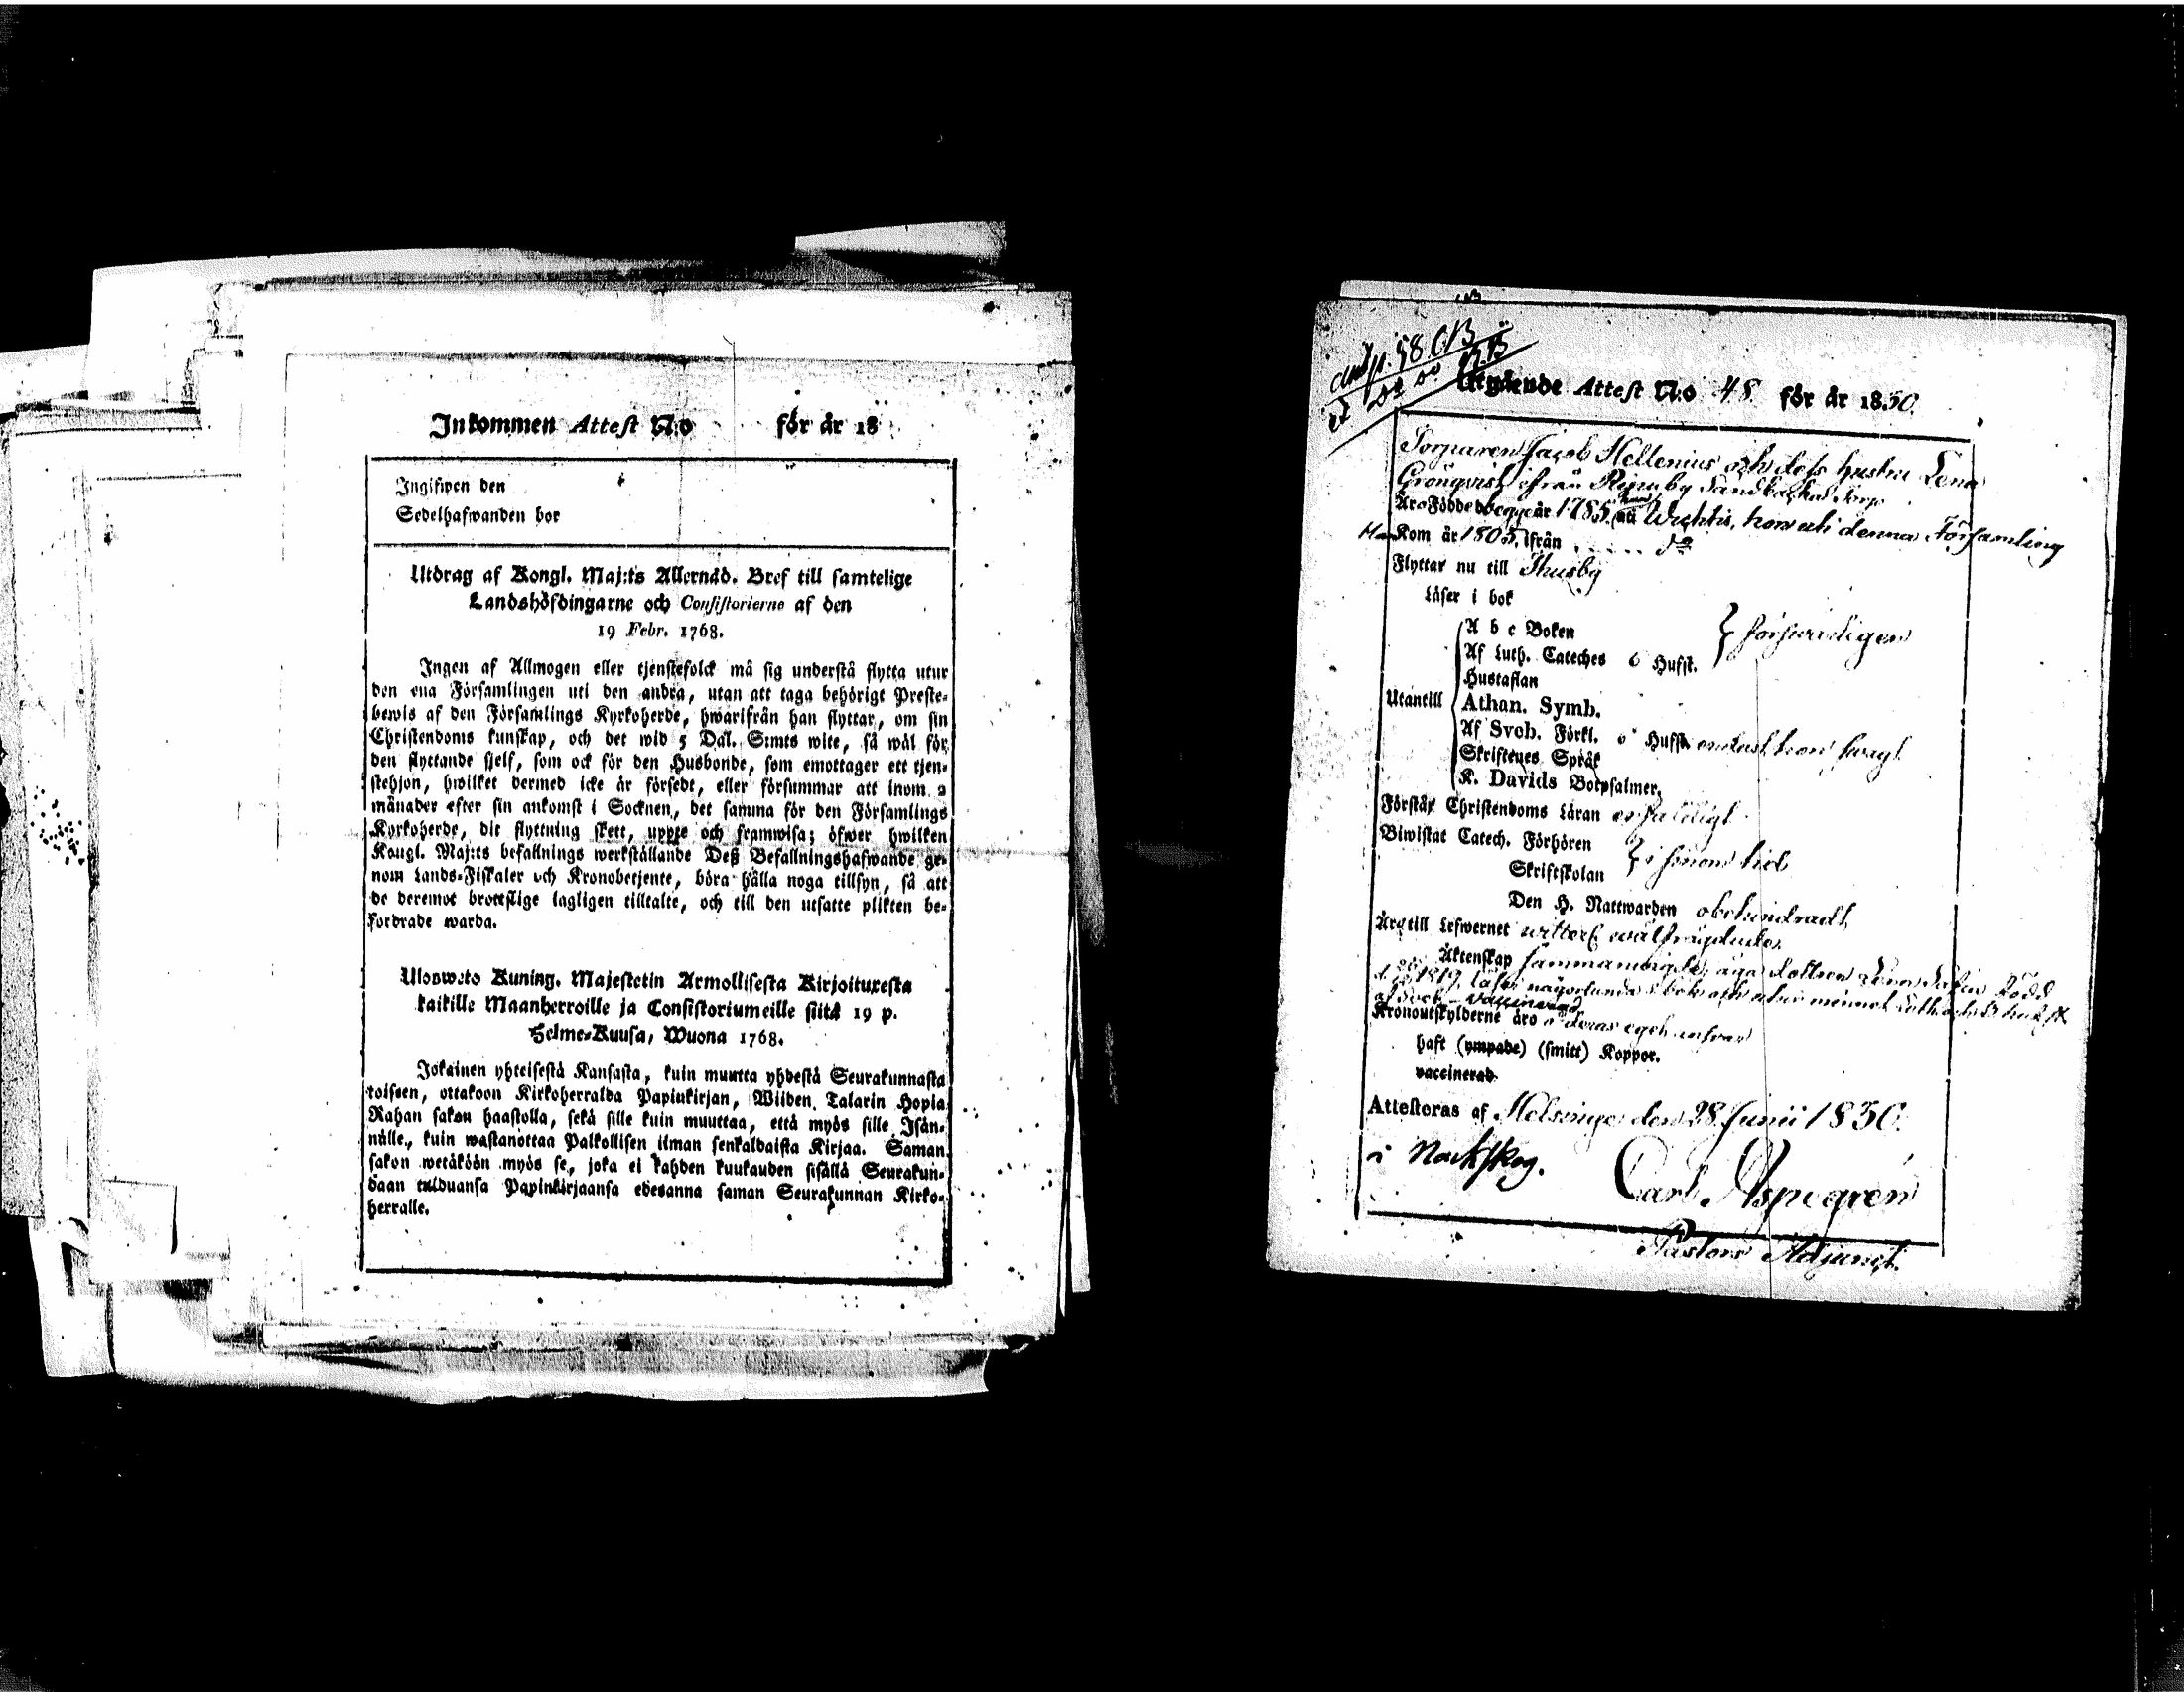 Inkommen Attest N:o för år 18
Ingifwen den
Sedelhafwanden bor
Utdrag af Kongl. Maj:ts Allernåd. Bref till samtelige
Landshöfdingarne och Consistorierne af den
19 Febr. 1768.
Ingen af Allmogen eller tjenstefolck må sig understå flytta utur
den ena Församlingen uti den andra, utan att taga behörigt Preste-
bewis af den Församlings Kyrkoherde, hwarifrån han flyttar, om sin
Christendoms kunskap, och det wid 5 Dal. S:mts wite, så wäl för
den flyttande sjelf, som ock för den Husbonde, som emottager ett tjen-
stehjon, hwilket dermed icke är försedt, eller försummar att inom 2
månader efter sin ankomst i Socknen, det samma för den Församlings
Kyrkoherde, dit flyttning skett, uppte och framwisa; öfwer hwilken
Kongl. Maj:ts befallnings werkställande Deß Befallningshafwande ge-
nom Lands-Fiskaler och Kronobetjente, böra hålla noga tillsyn, så att
de deremot brottslige lagligen tilltalte, och till den utsatte plikten be-
fordrade warda.
Ulosweto Kuning. Majestetin Armollisesta Kirjoituxesta
kaikille Maanherroille ja Consistoriumeille siitä 19 p.
Helme-Kuusa, Wuona 1768.
Jokainen yhteisestä Kansasta, kuin muutta yhdestä Seurakunnasta
toiseen, ottakoon Kirkoherralda Papinkirjan, Wiiden Talarin Hopia
Rahan sakon haastolla, sekä sille kuin muuttaa, että myös sille Isän-
nälle, kuin wastanottaa Palkollisen ilman senkaldaista Kirjaa. Saman
sakon wetäköön myös se, joka ei kahden kuukauden sisällä Seurakun-
daan tulduansa Papinkirjaansa edesanna saman Seurakunnan Kirko-
herralle.
58
Utgående Attest N:o 48 för år 1830.
Torparen Jacob Hellenius och dess hustru Lena
Grönqvist ifrån Sandbacka Torp
Äro Födde begge år 1785, Wichtis, hon uti denna Församling
Han Kom år 1805, ifrån d:o
Flyttar nu till Thusby
Läser i bok
A b c Boken
Af Luth. Cateches 6 Hufst. försvarligen
Hustaflan
Utantill Athan. Symb.
Af Sveb. Förkl. 6 Hufst. endast hon svagt
Skriftenes Språk
K. Davids Botpsalmer,
Förstår Christendoms Läran enfaldigt
Biwistat Catech. Förhören
Skriftskolan i sinom tid
Den H. Nattwarden obehindradt
Äro till Lefwernet wälfrägdade
Äktenskap sammanwigde, äga dottren Lena Född
1819, läser någorlunda i bok och
vaccinerad
Kronoutskylderne äro
haft (ympade) (smitt) Koppor.
vaccinerad
Attesteras af Helsinge den 28 Junii 1830.
i Nackskog.
Carl Aspegren
Pastors Adjunct.